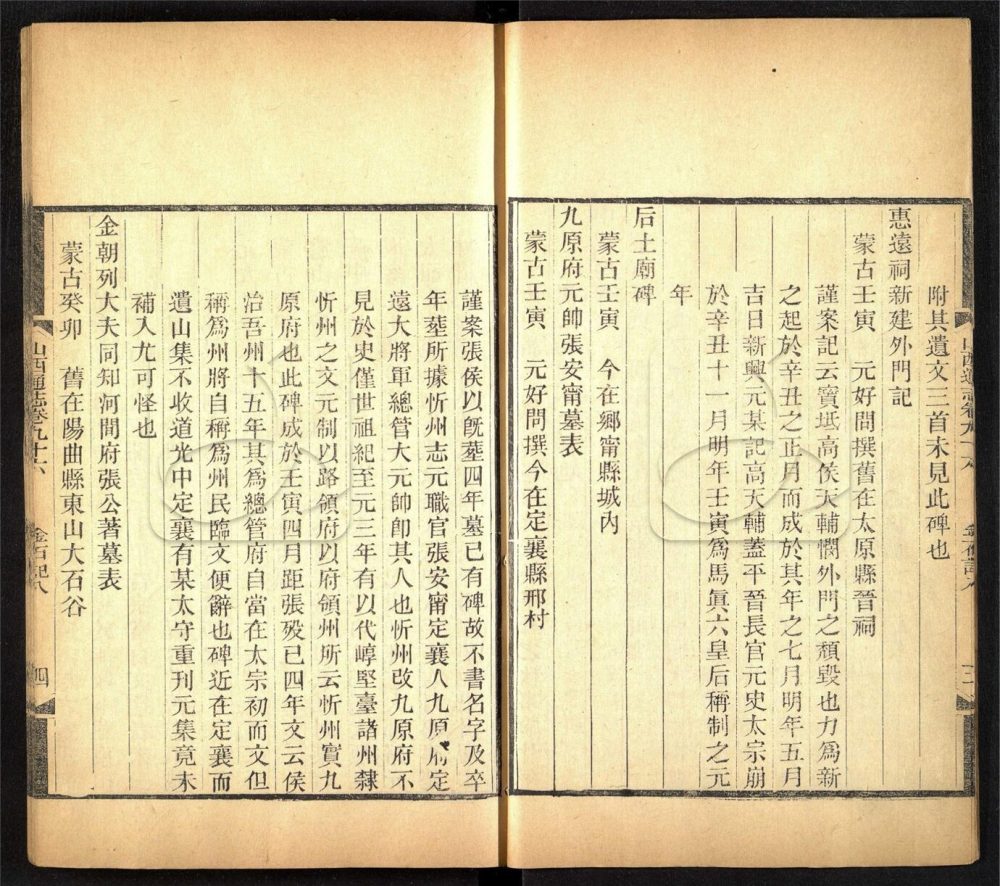 附其遺文三首未見此碑也
惠遠祠新建外門記
蒙古壬寅　元好問撰舊在太原縣晉祠
謹案記云寶坻高侯天輔憫外門之頹毀也力爲新
之起於辛丑之正月而成於其年之七月明年五月
吉日新興元某記高天輔蓋平晉長官元史太宗崩
於辛丑十一月明年壬寅爲馬眞六皇后稱制之元
年
后土廟碑
蒙古壬寅　今在鄉甯縣城內
九原府元帥張安甯墓表
蒙古壬寅　元好問撰今在定襄縣邢村
謹案張侯以旣葬四年墓已有碑故不書名字及卒
年葬所據忻州志元職官張安甯定襄人九原府定
遠大將軍總管大元帥卽其人也忻州改九原府不
見於史僅世祖紀至元三年有以代崞堅臺諸州隸
忻州之文元制以路領府以府領州所云忻州實九
原府也此碑成於壬寅四月距張歿已四年文云侯
治吾州十五年其爲總管府自當在太宗初而文但
稱爲州將自稱爲州民臨文便辭也碑近在定襄而
遺山集不收道光中定襄有某太守重刊元集竟未
補入尤可怪也
金朝列大夫同知河間府張公著墓表
蒙古癸卯　舊在陽曲縣東山大石谷
山西通志卷九十六　金石記八　四